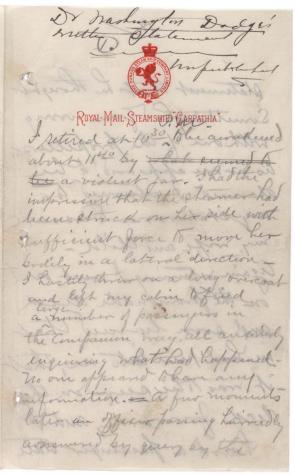 Dr Washington Dodge's
written Statement
Unpublished
ROYAL MAIL STEAMSHIP "CARPATHIA"
I retired at 10 30 P.M. awakened
about 11 40 by
a violent jar. I had the
impression that the steamer had
been struck on her side with
sufficient force to move her
bodily in a lateral direction –
I hastily threw on a long overcoat
and left my cabin to find
a large number of passengers in
the companion way, all anxiously
enquiring what had happened –
No one appeared to have any
information. – A few moments
later an officer passing hurriedly
answered my query by the